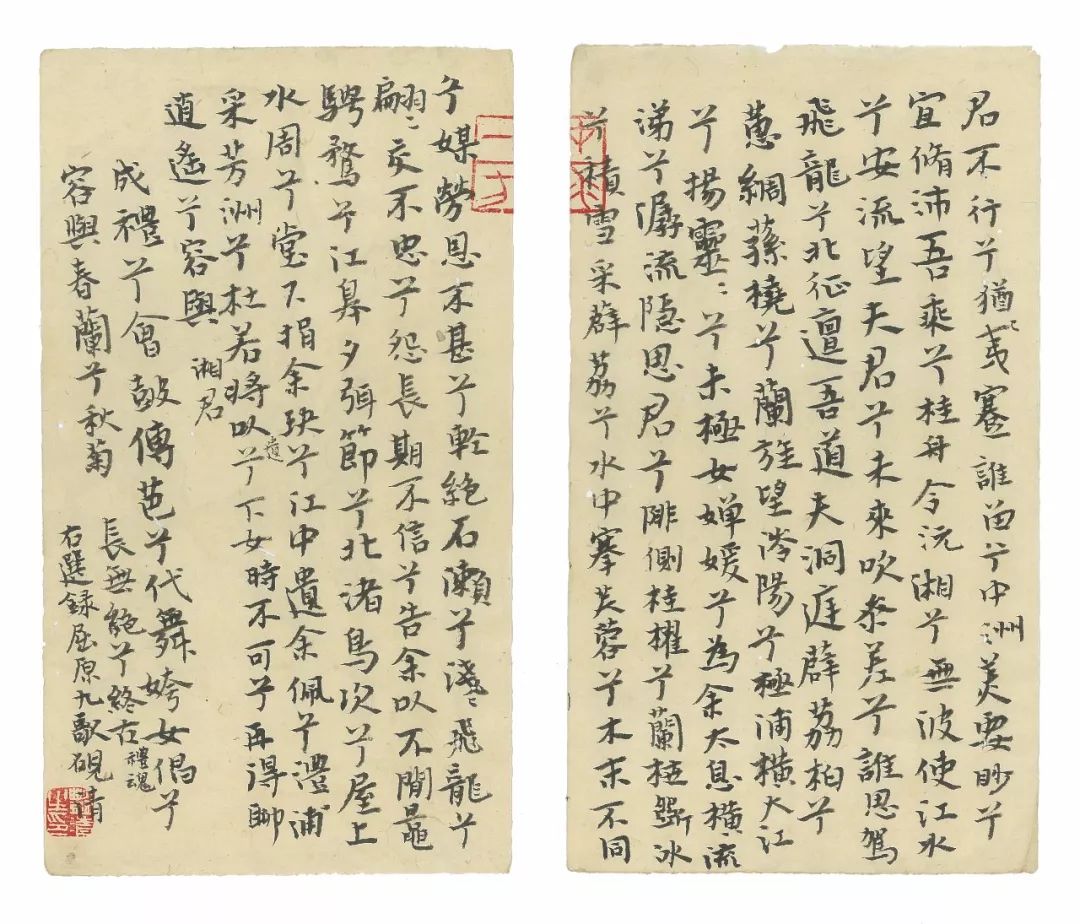 君不行兮猶夷蹇誰留兮中洲美要眇兮
宜脩沛吾乘兮桂舟令沅湘兮無波使江水
兮安流望夫君兮未來吹參差兮誰思駕
飛龍兮北征邅吾道夫洞庭薜荔柏兮
蕙綢蓀橈兮蘭旌望涔陽兮極浦橫大江
兮揚靈〻兮未極女嬋媛兮為余太息橫流
涕兮潺流隱思君兮陫側桂櫂兮蘭枻斲冰
兮積雪采薜荔兮水中搴芙蓉兮木末不同
兮媒勞恩不甚兮輕絕石瀨兮淺〻飛龍兮
翩〻交不忠兮怨長期不信兮告余以不閒鼂
騁騖兮江皋夕弭節兮北渚鳥次兮屋上
水周兮堂下捐余玦兮江中遺余佩兮澧浦
采芳洲兮杜若將以遺兮下女時不可兮再得聊
逍遙兮容與 湘君
成禮兮會鼓傳芭兮代舞姱女倡兮
容與春蘭兮秋菊 長無絕兮終古 禮魂
右選錄屈原九歌硯